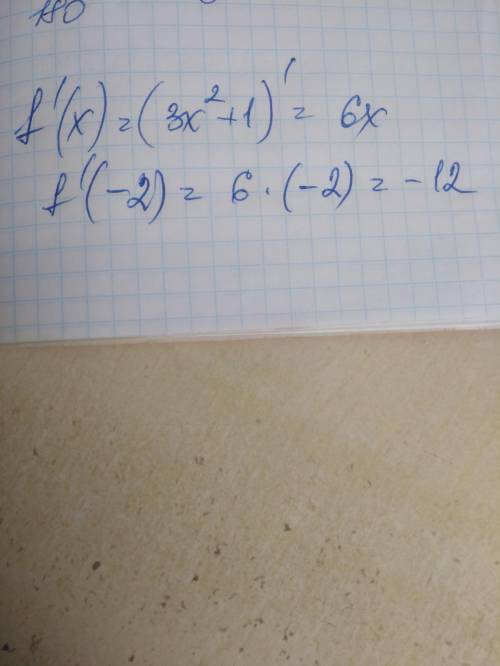 f'(x) = (3x²+1)' = 6x
f'(-2) = 6·(-2) = -12